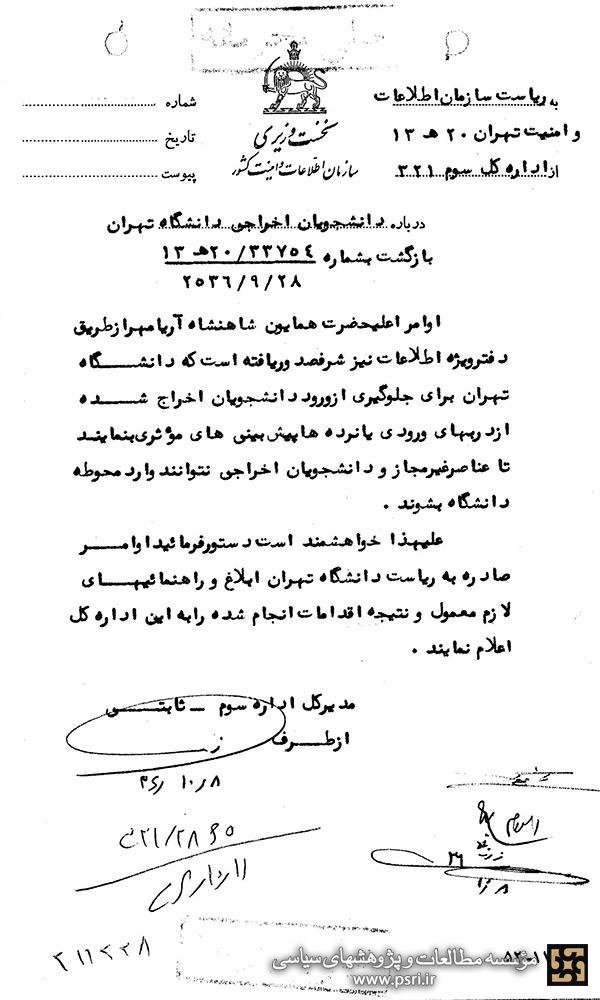 به ریاست سازمان اطلاعات
و امنیت تهران ۲۰ هـ ۱۳
از اداره کل سوم ۳۲۱
نخست وزیری
سازمان اطلاعات و امنیت کشور
شماره
تاریخ
پیوست
درباره دانشجویان اخراجی دانشگاه تهران
بازگشت بشماره ۲۰/۳۳۷۵۴هـ ۱۳
۲۵۳۶/۹/۲۸
اوامر اعلیحضرت همایون شاهنشاه آریامهر از طریق
دفتر ویژه اطلاعات نیز شرفصدور یافته است که دانشگاه
تهران برای جلوگیری از ورود دانشجویان اخراج شده
از دربهای ورودی یا نرده ها پیش بینی های مؤثری بنمایند
تا عناصر غیر مجاز و دانشجویان اخراجی نتوانند وارد محوطه
دانشگاه بشوند .
علیهذا خواهشمند است دستور فرمائید اوامر
صادره به ریاست دانشگاه تهران ابلاغ و راهنمائیهای
لازم معمول و نتیجه اقدامات انجام شده را به این اداره کل
اعلام نمایند .
مدیر کل اداره سوم ـ ثابتی
از طرف
۳۶/۱۰/۸
۲۱۱۲۲۸
مؤسسه مطالعات و پژوهشهای سیاسی
www.psri.ir